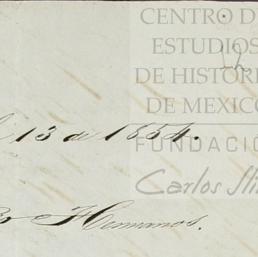 CENTRO D
ESTUDIOS
DE HISTORI
DE MEXICO
FUNDACIÓ
Carlos Sli
13 de 1854.
Hermanos.